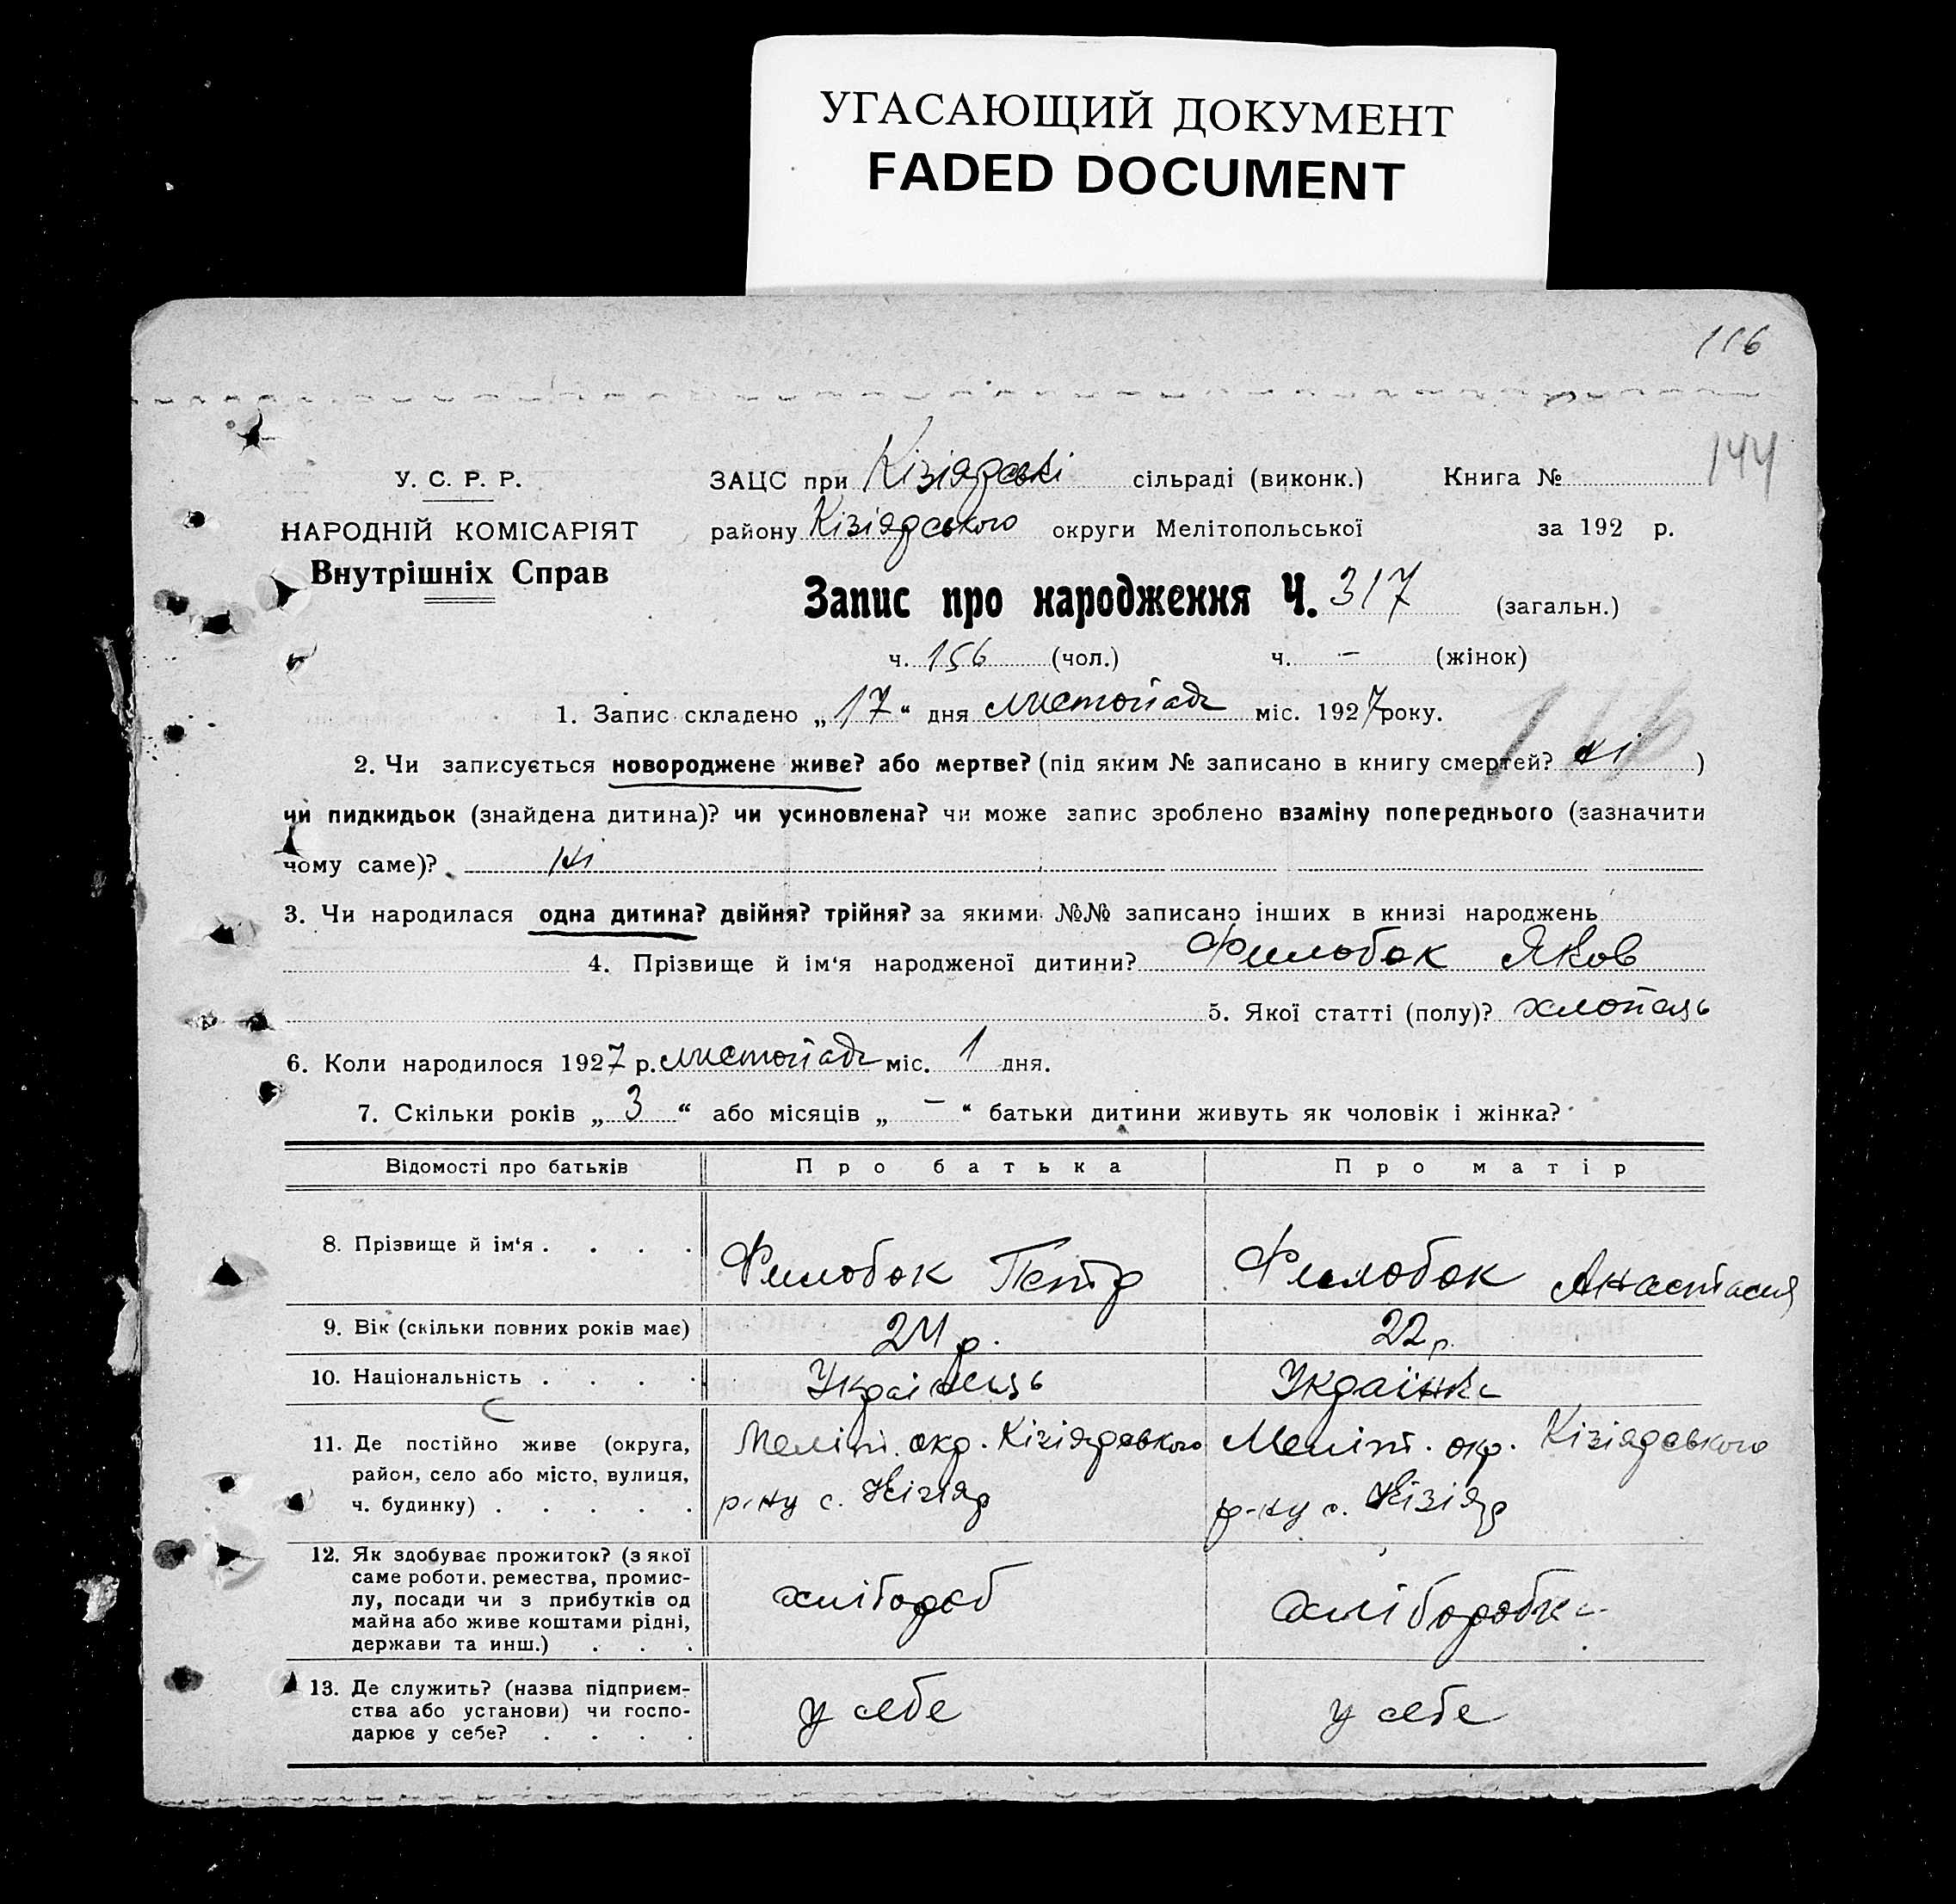 УГАСАЮЩИЙ ДОКУМЕНТ
FADED DOCUMENT
116
144
У. С. Р. Р.
НАРОДНІЙ КОМІСАРІЯТ
Внутрішніх Справ
ЗАЦС при Кізіярські сільраді (виконк.) Книга №
району Кізіярського округи Мелітопольської за 192 р.
Запис про народження Ч. 317 (загальн.)
ч. 156 (чол.) ч. — (жінок)
1. Запис складено „17“ дня листопада міс. 1927 року.
116
2. Чи записується новороджене живе? або мертве? (під яким № записано в книгу смертей? ні )
чи пидкидьок (знайдена дитина)? чи усиновлена? чи може запис зроблено взаміну попереднього (зазначити
чому саме)? ні
3. Чи народилася одна дитина? двійня? трійня? за якими №№ записано інших в книзі народжень
4. Прізвище й ім‘я народженої дитини? Филобок Яков
5. Якої статті (полу)? хлопець
6. Коли народилося 1927 р. листопада міс. 1 дня.
7. Скільки років „ 3 “ або місяців „ — “ батьки дитини живуть як чоловік і жінка?
Відомості про батьків Про батька Про матір
8. Прізвище й ім‘я . . . . Филобок Петр Филобок Анастасия
9. Вік (скільки повних років має) 24 р. 22 р.
10. Національність . . . . Українець Українка
11. Де постійно живе (округа,
район, село або місто, вулиця,
ч. будинку) . . . . .
Меліт. окр. Кізіярського
р-ну с. Кізіяр
Меліт. окр. Кізіярського
р-ну с. Кізіяр
12. Як здобуває прожиток? (з якої
саме роботи, ремества, промис-
лу, посади чи з прибутків од
майна або живе коштами рідні,
держави та инш.) . . .
хлібороб
хліборобка
13. Де служить? (назва підприєм-
ства або установи) чи госпо-
дарює у себе? . . . .
у себе
у себе